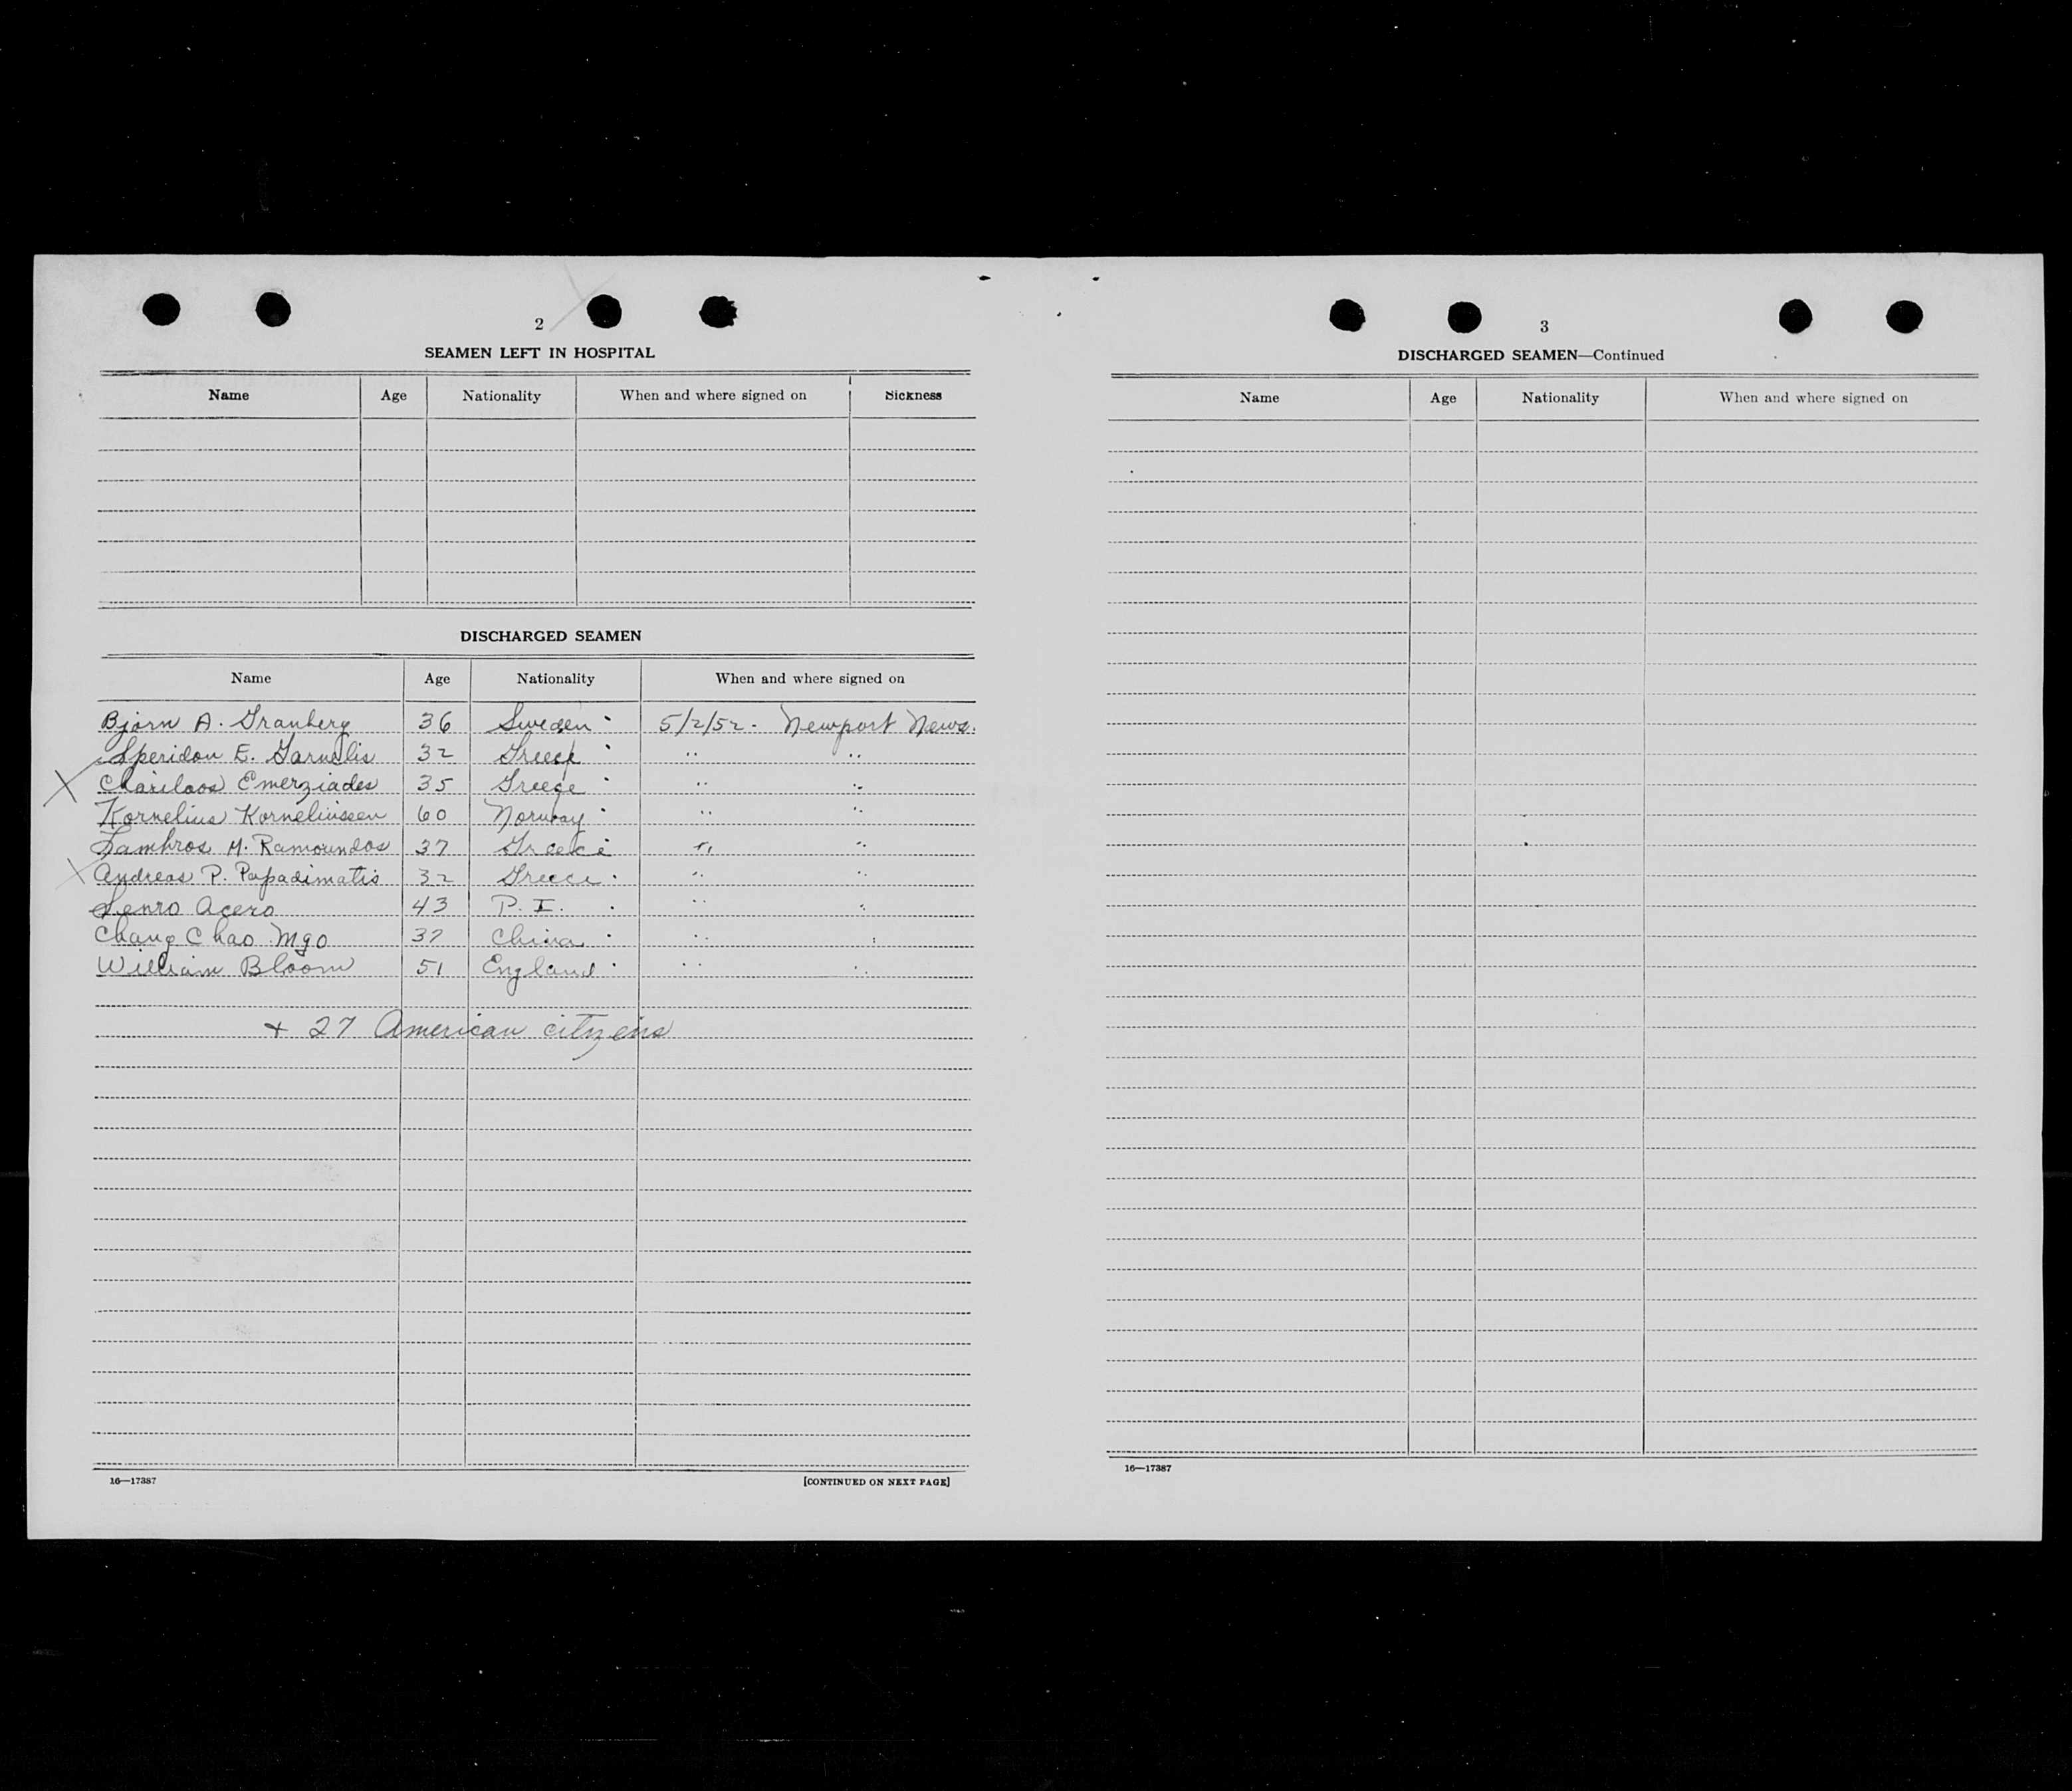 2
SEAMEN LEFT IN HOSPITAL
Name Age Nationality When and where signed on Sickness
DISCHARGED SEAMEN
Name Age Nationality When and where signed on
Bjorn A. Granberg 36 Sweden 5/2/52 - Newport News.
Speridon E. Garnelis 32 Greece " "
X Charilaos Emerziades 35 Greece " "
Kornelius Korneliussen 60 Norway " "
Lambros M. Ramoundos 37 Greece " "
X Andreas P. Papadimatis 32 Greece " "
Acero 43 P. I. " "
Chang Chao Mgo 37 China " "
William Bloom 51 England " "
+ 27 American citizens
16—17387 [CONTINUED ON NEXT PAGE]
3
DISCHARGED SEAMEN—Continued
Name Age Nationality When and where signed on
16—17387